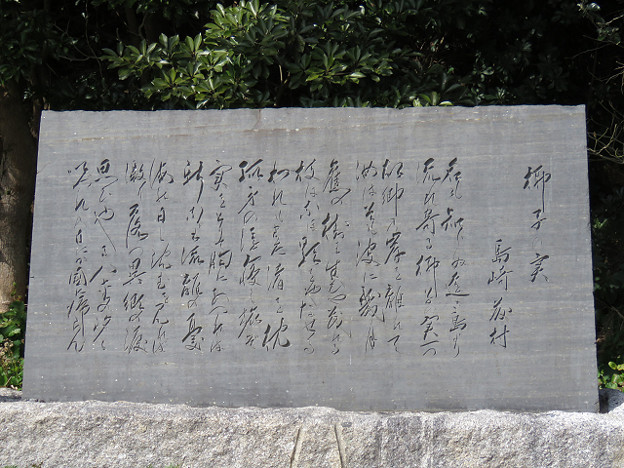 椰子の実
島崎藤村
名も知らぬ遠き島より
流れ寄る椰子の実一つ
故郷の岸を離れて
汝はそも波に幾月
舊の樹は生ひや茂れる
枝はなほ影をやなせる
われもまた渚を枕
孤身の浮寝の旅ぞ
実をとりて胸にあつれば
新なり流離の憂
海の日の沈むを見れば
激り落つ異郷の涙
思ひやる八重の汐々
いづれの日にか国に帰らん